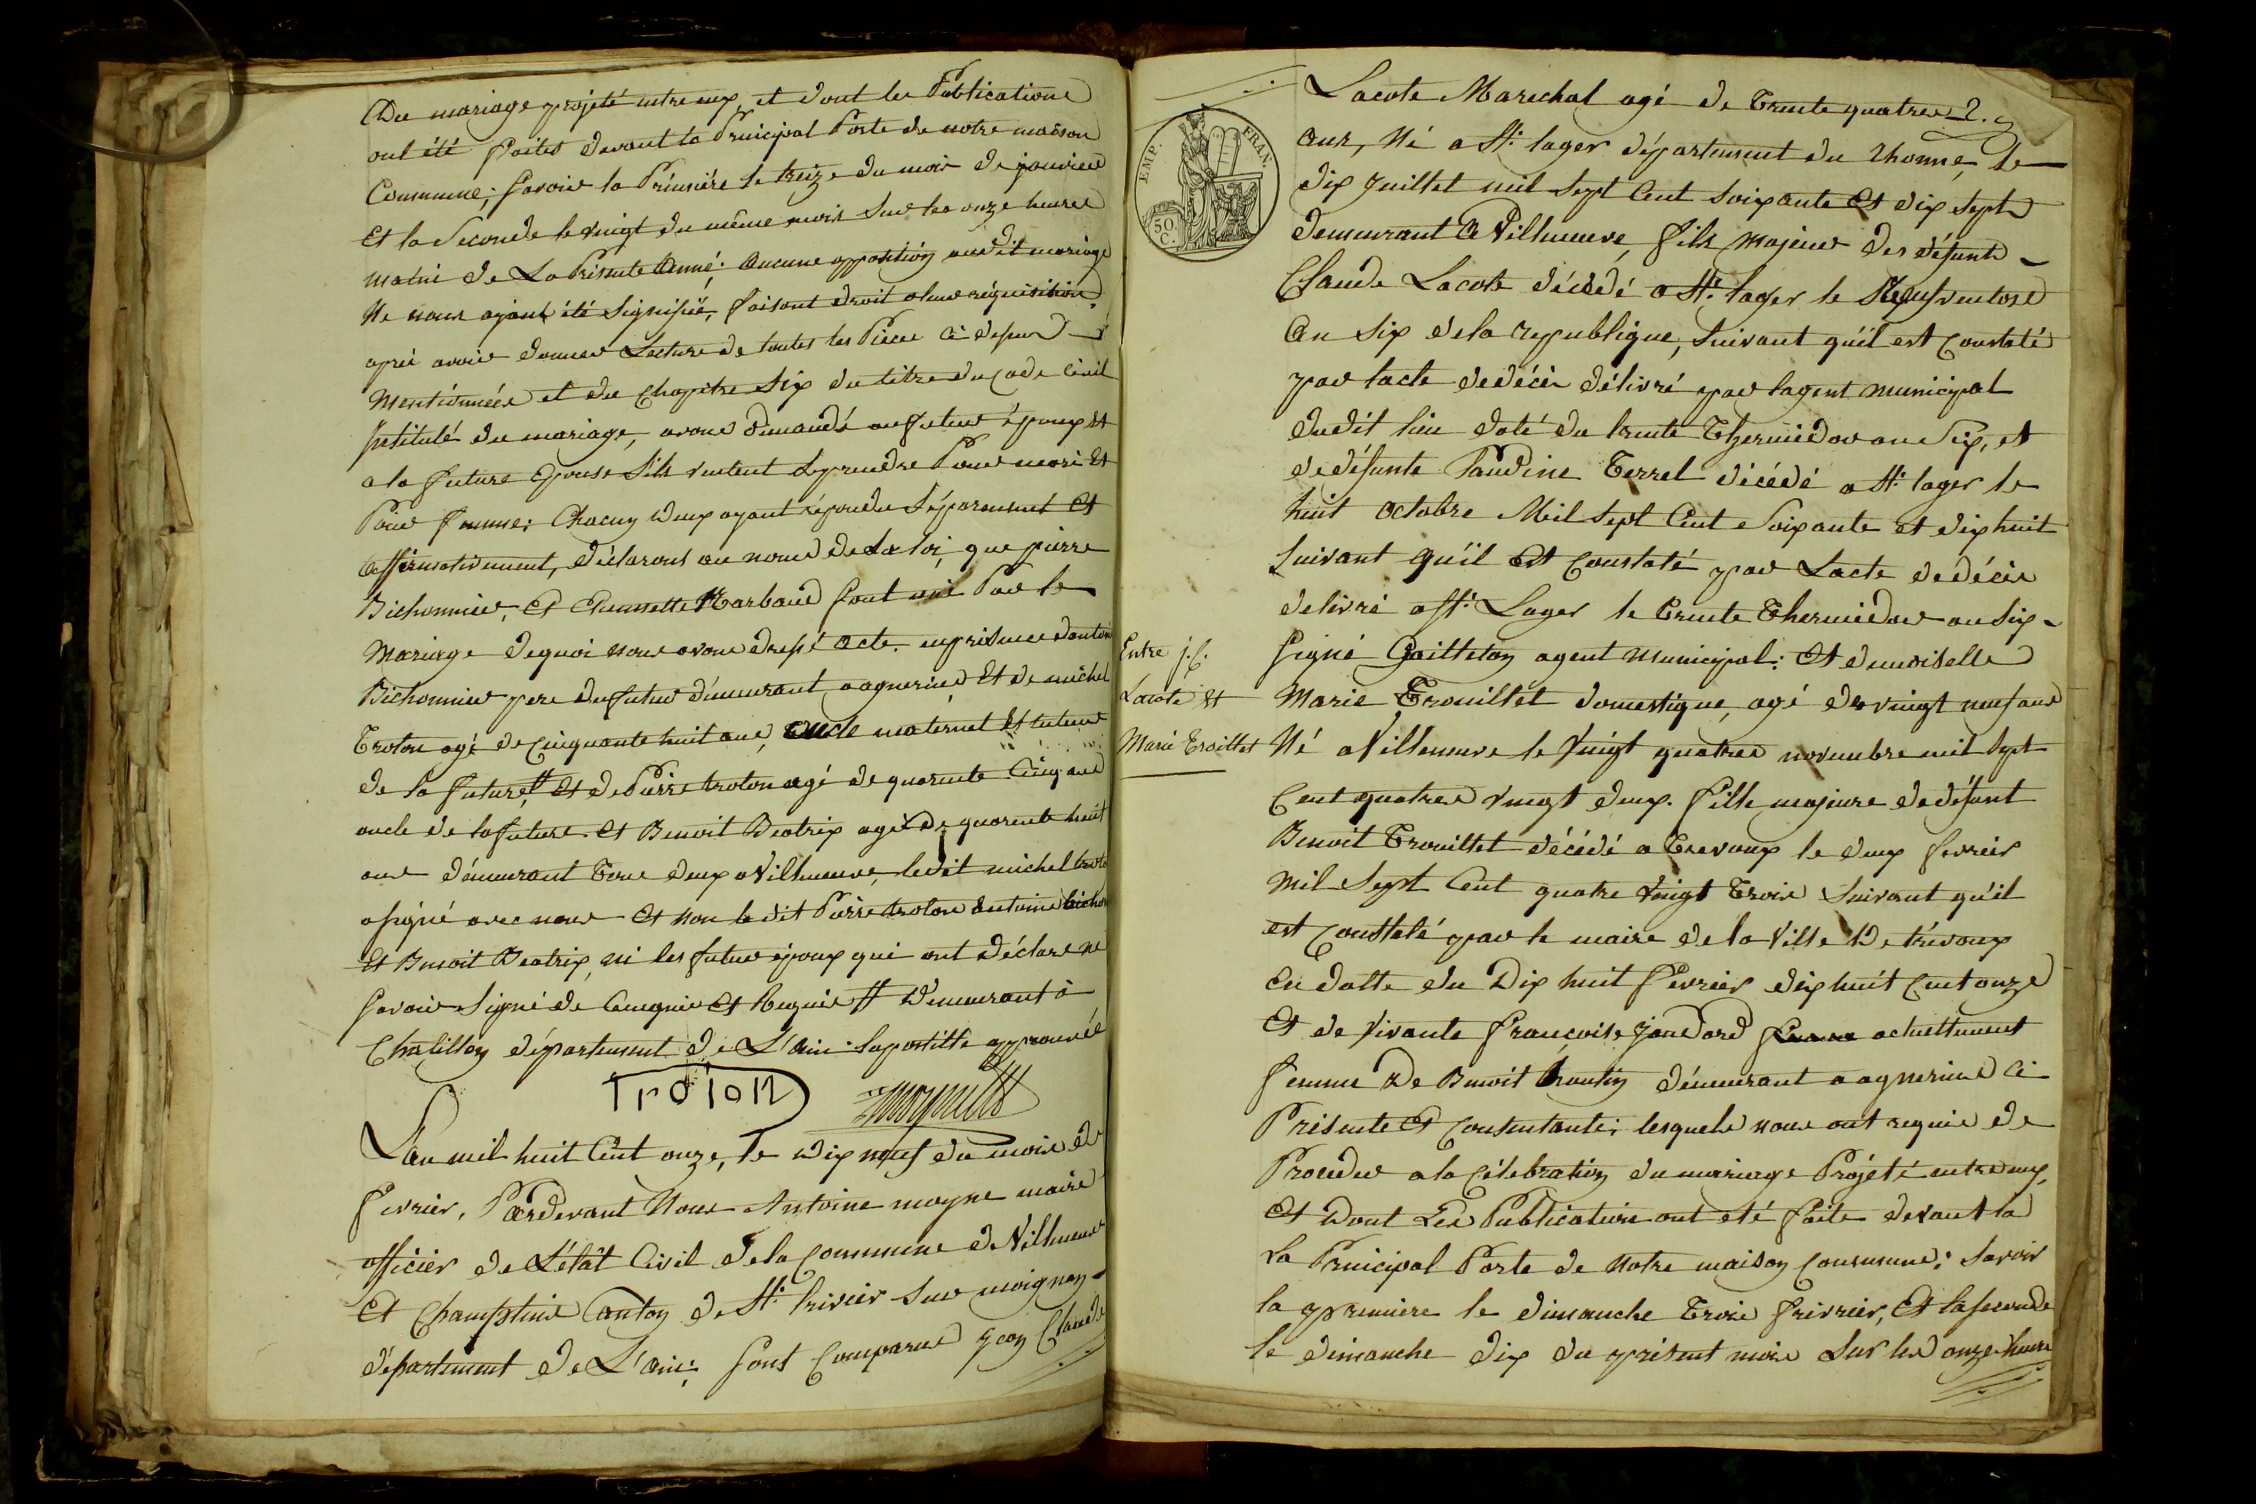 Du mariage projeté entre eux, et dont les Publications
ont été faites devant la Principal Porte de notre maison
Commune; savoir la Prémiére le treize du mois de janvier
Et la Seconde le vingt du même mois sur les onze heures
matin de La Présente Année; Aucune opposition audit mariage
Ne nous ayant été Signifiée, faisant droit a leur réquisition
aprés avoir donner Lecture de toutes les Pièces ci dessus
Mentionnées et du Chapitre Six du titre du Code Civil
Intitulé du mariage, avons démandé au futur époux Et
a la future Epouse S'ils veulent se prendre Pour mari Et
Pour femme; Chacun d'eux ayant répondu Séparement Et
affirmativement, déclarons au nom de La loi, que pierre
Bichonnier, Et Claudette Barbaud sont uni Par le
Mariage dequoi nous avons dressé acte en présence d'antoine
Bichonnier pere du futur démeurant a agnerins Et de michel
Troton agé de Cinquante huit ans, oncle maternel Et tuteur
de la future, # Et de Pierre troton agé de quarente Cinq ans
oncle de la future Et Benoit Beatrix agé de quarente huit
ans démeurant Tous deux a Villeneuve, ledit michel troton
a signé avec nous Et non le dit Pierre troton Antoine bichon
Et Benoit Beatrix, ni les futur époux qui ont déclaré ne
savoir Signé de Cenquis Et Requis # Démeurant à
Chatillon département de L'ain. Lapostille approuvée
Troton
Moyne
L'an mil huit Cent onze, le Dix neuf du mois de
fevrier, Pardevant Nous Antoine moyne maire
officier de L'état Civil de la Commune de Villeneuve
Et Champteins Canton de St. trivier Sur moignans
département de L'ain; sont Comparus Jean Claude
2.
EMP. FRAN.
50 C.
Lacote Marechal agé de Trente quatre
ans, Né a St. lager département du Rhonne, le
dix Juillet mil Sept Cent soixante Et dix sept
demeurant A Villeneuve, fils Majeur des défunts
Claude Lacote décédé a St. lager le Neuf ventose
An Six de la republique, Suivant qu'il est Constaté
par l'acte de décès délivré par l'agent municipal
dudit lieu daté du trente Thermidor an Six, et
de défunte Claudine Terrel décédé a St. lager le
huit octobre Mil Sept Cent Soixante et dix huit
Suivant qu'il Est Constaté par L'acte de décès
delivré a St. Lager le trente Thermidor an Six
Signé Gailleton agent Municipal; Et demoiselle
Entre j. C.
Lacote Et
Marie Troillet
Marie Trouillet domestique, agé de vingt neuf ans
Né a Villeneuve le Vingt quatre novembre mil Sept
Cent quatre vingt deux. fille majeure de défunt
Benoit Trouillet décédé a Trevoux le deux fevrier
Mil Sept Cent quatre Vingt Trois Suivant qu'il
est Constaté par le maire de la Ville De trévoux
En datte du Dix huit Fevrier dix huit Cent onze
Et de Vivante françoise Jandard actuellement
femme De Benoit démeurant a agnerins ci
Présente Et Consentante; lesquels nous ont requis de
Proceder a la Célebration du mariage Projeté entre eux,
Et Dont Les Publications ont eté faite devant la
La Principal Porte de Notre maison Commune; Savoir
la premiere le dimanche Trois frévrier, Et la seconde
le dimanche dix du présent mois Sur les onze heures